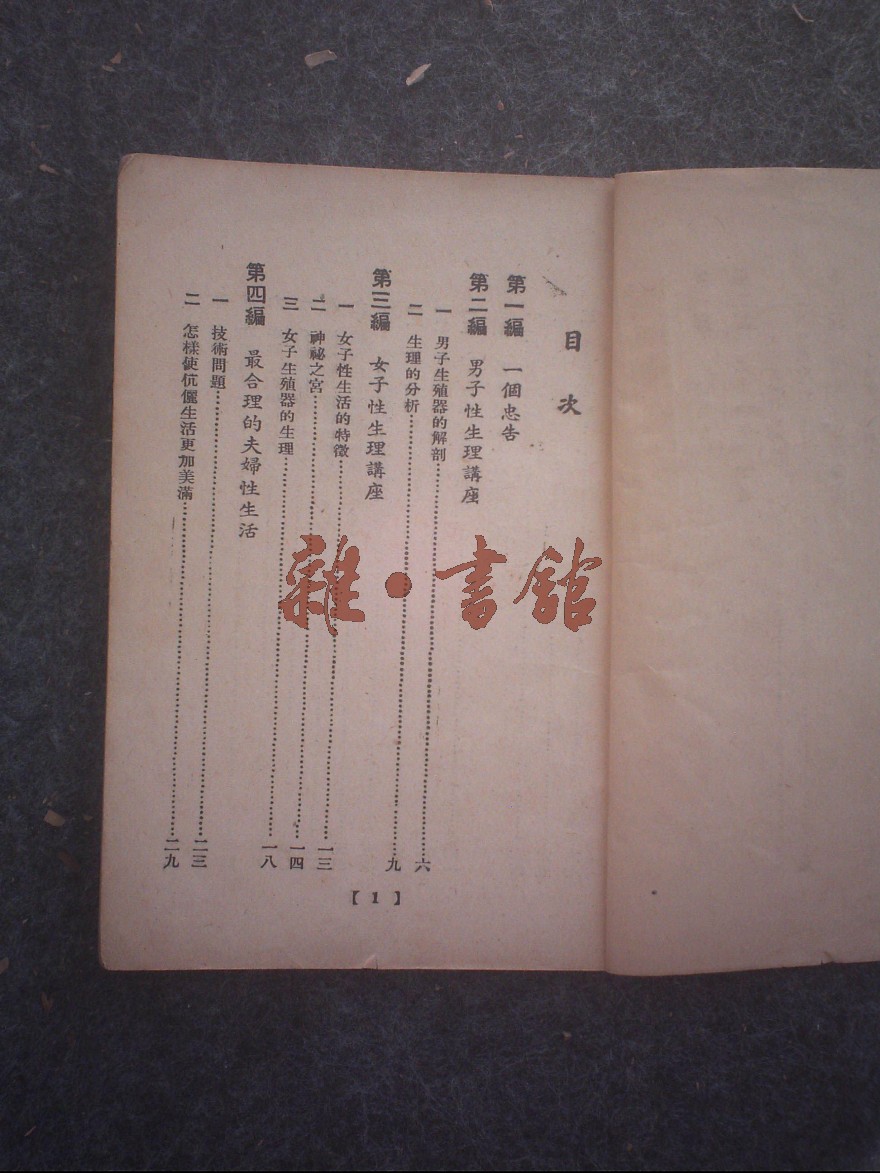 目次
第一編　一個忠告
第二編　男子性生理講座
一　男子生殖器的解剖……六
二　生理的分析……九
第三編　女子性生理講座
一　女子性生活的特徵……一三
二　神祕之宮……一四
三　女子生殖器的生理……一八
第四編　最合理的夫婦性生活
一　技術問題……二三
二　怎樣使伉儷生活更加美滿……二九
【1】
雜·書館